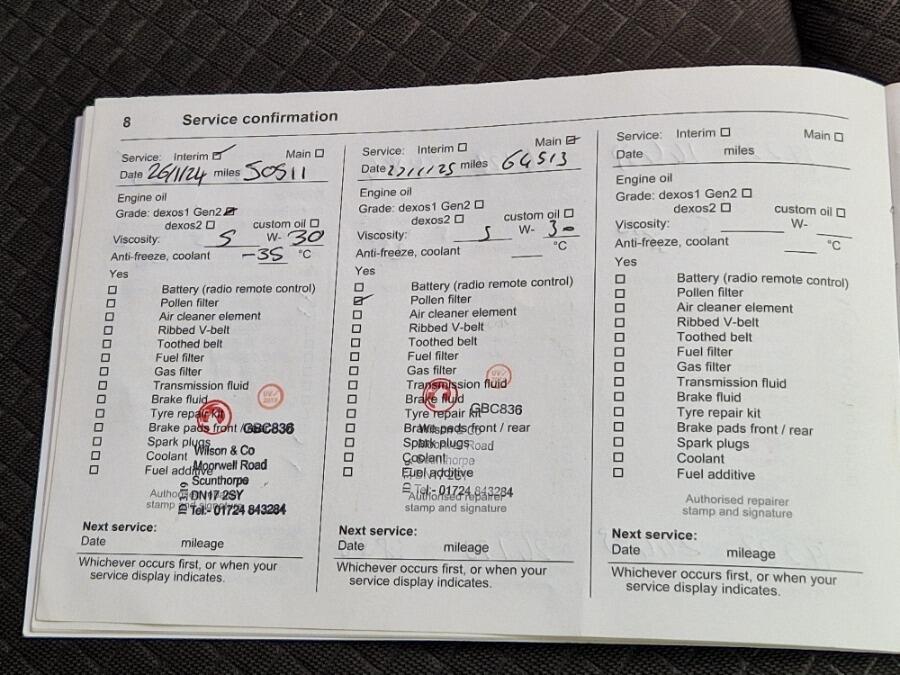 8 Service confirmation
Service: Interim Main
Date 26/1/24 miles 50511
Engine oil
Grade: dexos1 Gen2
dexos2 custom oil
Viscosity: 5 W- 30
Anti-freeze, coolant -35 °C
Yes
Battery (radio remote control)
Pollen filter
Air cleaner element
Ribbed V-belt
Toothed belt
Fuel filter
Gas filter
Transmission fluid
Brake fluid
Tyre repair kit
Brake pads front / GBC836
Spark plugs
Wilson & Co
Coolant
Moorwell Road
Fuel additive
Scunthorpe
DN17 2SY
Authorised repairer
stamp and signature
Tel:- 01724 843284
Next service:
Date mileage
Whichever occurs first, or when your
service display indicates.
Service: Interim Main
Date miles 64513
Engine oil
Grade: dexos1 Gen2
dexos2 custom oil
Viscosity: 5 W- 30
Anti-freeze, coolant °C
Yes
Battery (radio remote control)
Pollen filter
Air cleaner element
Ribbed V-belt
Toothed belt
Fuel filter
Gas filter
Transmission fluid
Brake fluid
Tyre repair kit GBC836
Brake pads front / rear
Spark plugs Road
Coolant
Fuel additive
Tel:- 01724 843284
Authorised repairer
stamp and signature
Next service:
Date mileage
Whichever occurs first, or when your
service display indicates.
Service: Interim Main
Date miles
Engine oil
Grade: dexos1 Gen2
dexos2 custom oil
Viscosity: W-
Anti-freeze, coolant °C
Yes
Battery (radio remote control)
Pollen filter
Air cleaner element
Ribbed V-belt
Toothed belt
Fuel filter
Gas filter
Transmission fluid
Brake fluid
Tyre repair kit
Brake pads front / rear
Spark plugs
Coolant
Fuel additive
Authorised repairer
stamp and signature
Next service:
Date mileage
Whichever occurs first, or when your
service display indicates.